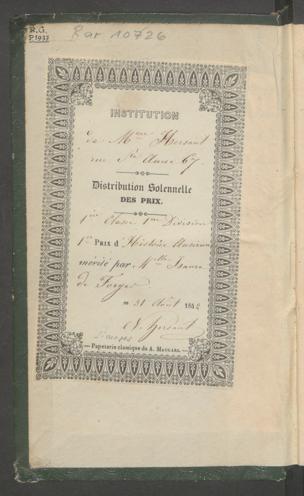 R.G.
P1933
Rar 10726
INSTITUTION
de Mme Hersant
rue Ste Anne 67
Distribution Solennelle
DES PRIX.
1ère Classe 1ère Division
1er PRIX d Histoire Ancienne
mérité par Melle Isaure
de
31 Août 184
Hersant
Papeterie classique de A. MAUGARS.